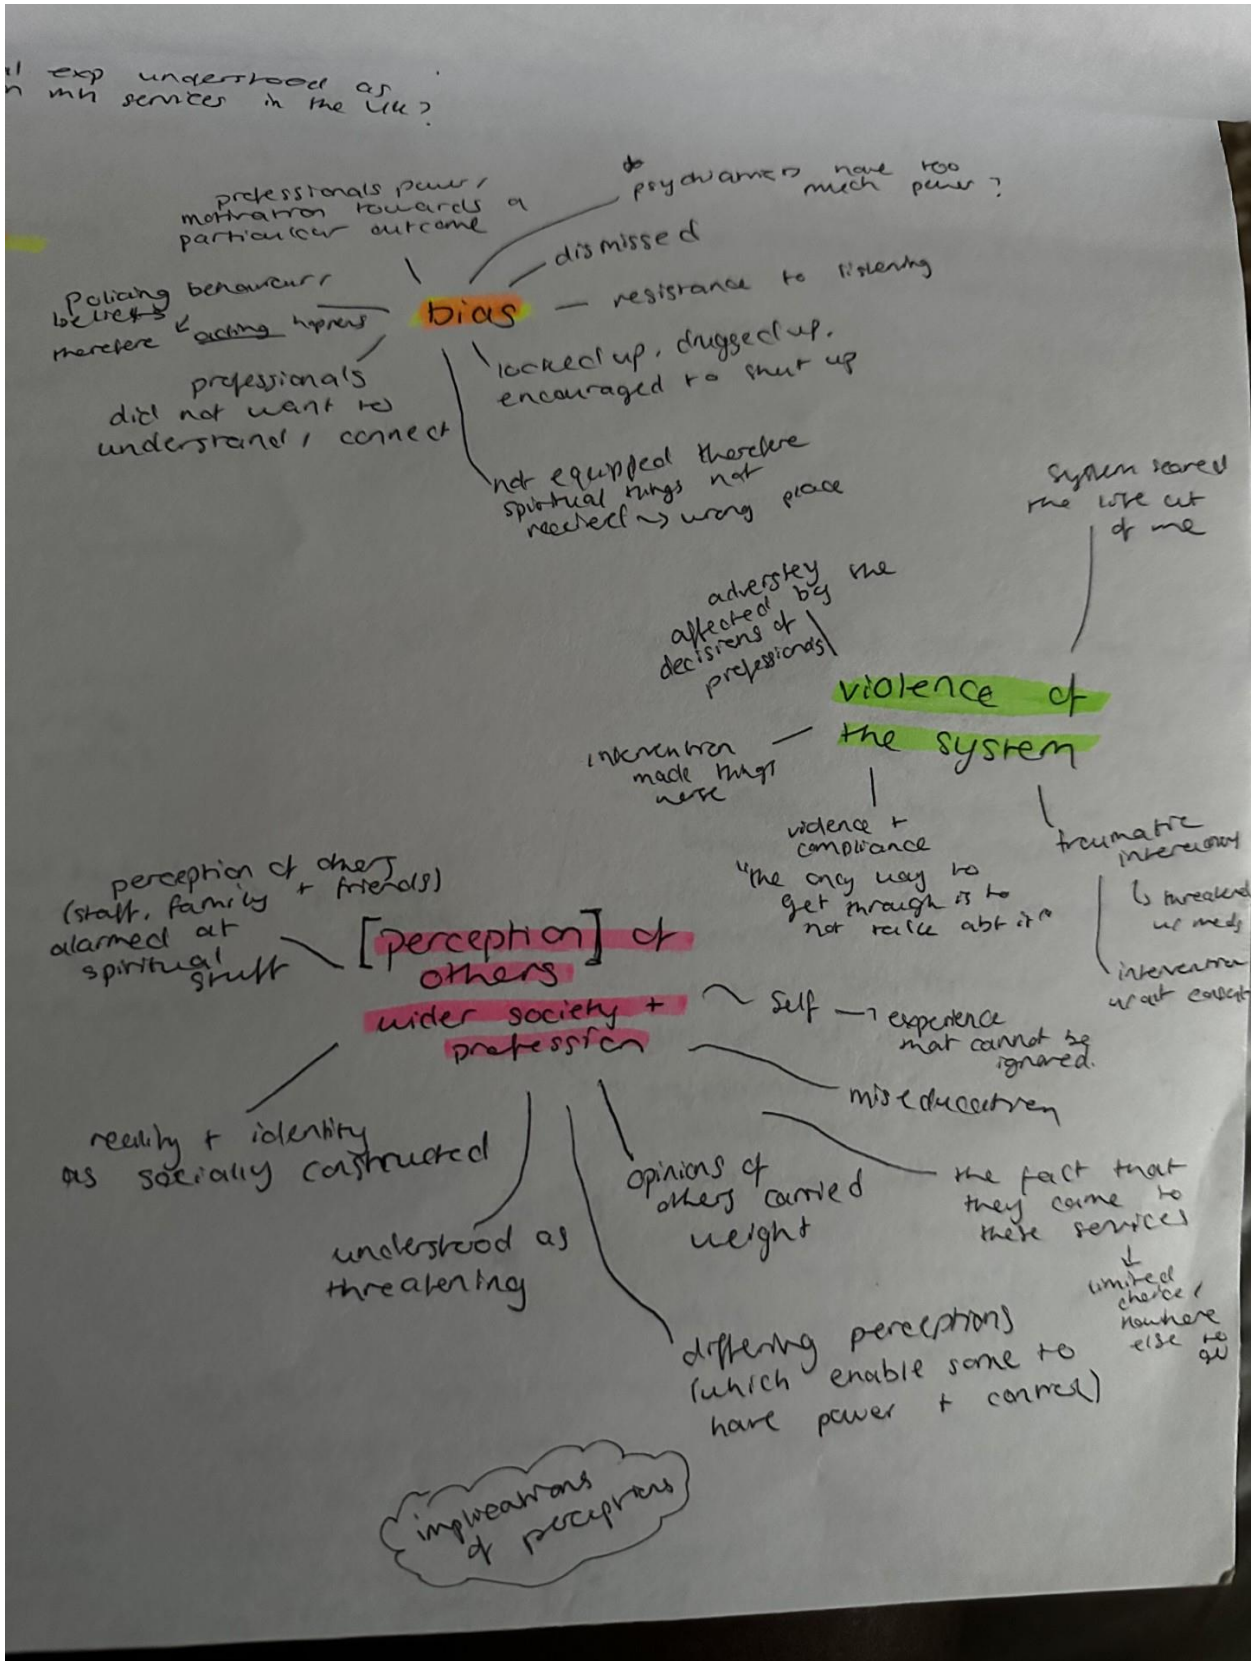 exp understood as
mh services in the UK?
professionals power /
motivation towards a
particular outcome
* psychiatrists have too
much power?
dismissed
resistance to listening
bias
Policing behaviour /
beliefs
therefore acting happens
professionals
did not want to
understand / connect
locked up, drugged up,
encouraged to shut up
not equipped therefore
spiritual things not
needed → wrong place
system scared
the life out
of me
adversley
affected by the
decisions of
professionals
violence of
the system
intervention
made things
worse
violence +
compliance
"the only way to
get through is to
not talk abt it"
traumatic
↳ threatened
w meds
intervention
w out consent
perception of others
(staff, family + friends)
alarmed at
spiritual
stuff
[perception] of
others
wider society +
profession
Self → experience
that cannot be
ignored.
miseducation
the fact that
they came to
these services
↓
limited
choice /
nowhere
else to
go
opinions of
others carried
weight
reality + identity
as socially constructed
understood as
threatening
differing perceptions
(which enable some to
have power + control)
implications
of perceptions